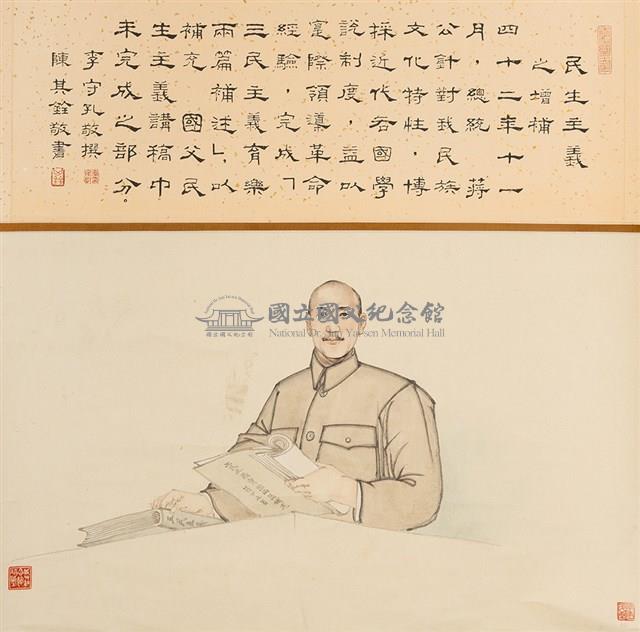 民生主義
之增補
四十二年十一
月，總統 蔣
公針對我民族
文化特性，博
採近代各國學
說制度，益以
寔際領導革命
經驗，完成「
三民主義育樂
兩篇補述」，以
補充 國父民
生主義講稿中
未完成之部分。
李守孔敬撰
陳其銓敬書
國立國父紀念館
國立國父紀念館
National Dr. Sun Yat-sen Memorial Hall